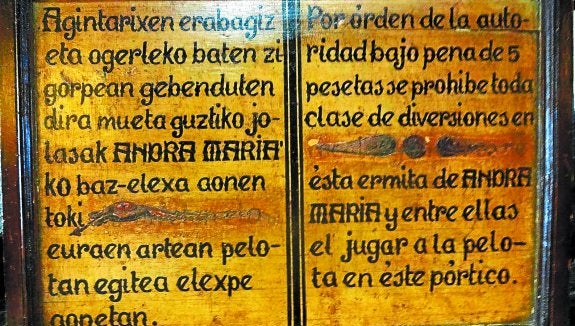 Agintarixen erabagiz
eta ogerleko baten zi
gorpean gebenduten
dira mueta guztiko jo-
lasak ANDRA MARIA'
ko baz-elexa aonen
toki
euraen artean pelo-
tan egitea elexpe
aonetan.
Por órden de la auto-
ridad bajo pena de 5
pesetas se prohibe toda
clase de diversiones en
ésta ermita de ANDRA
MARIA y entre ellas
el jugar a la pelo-
ta en éste pórtico.